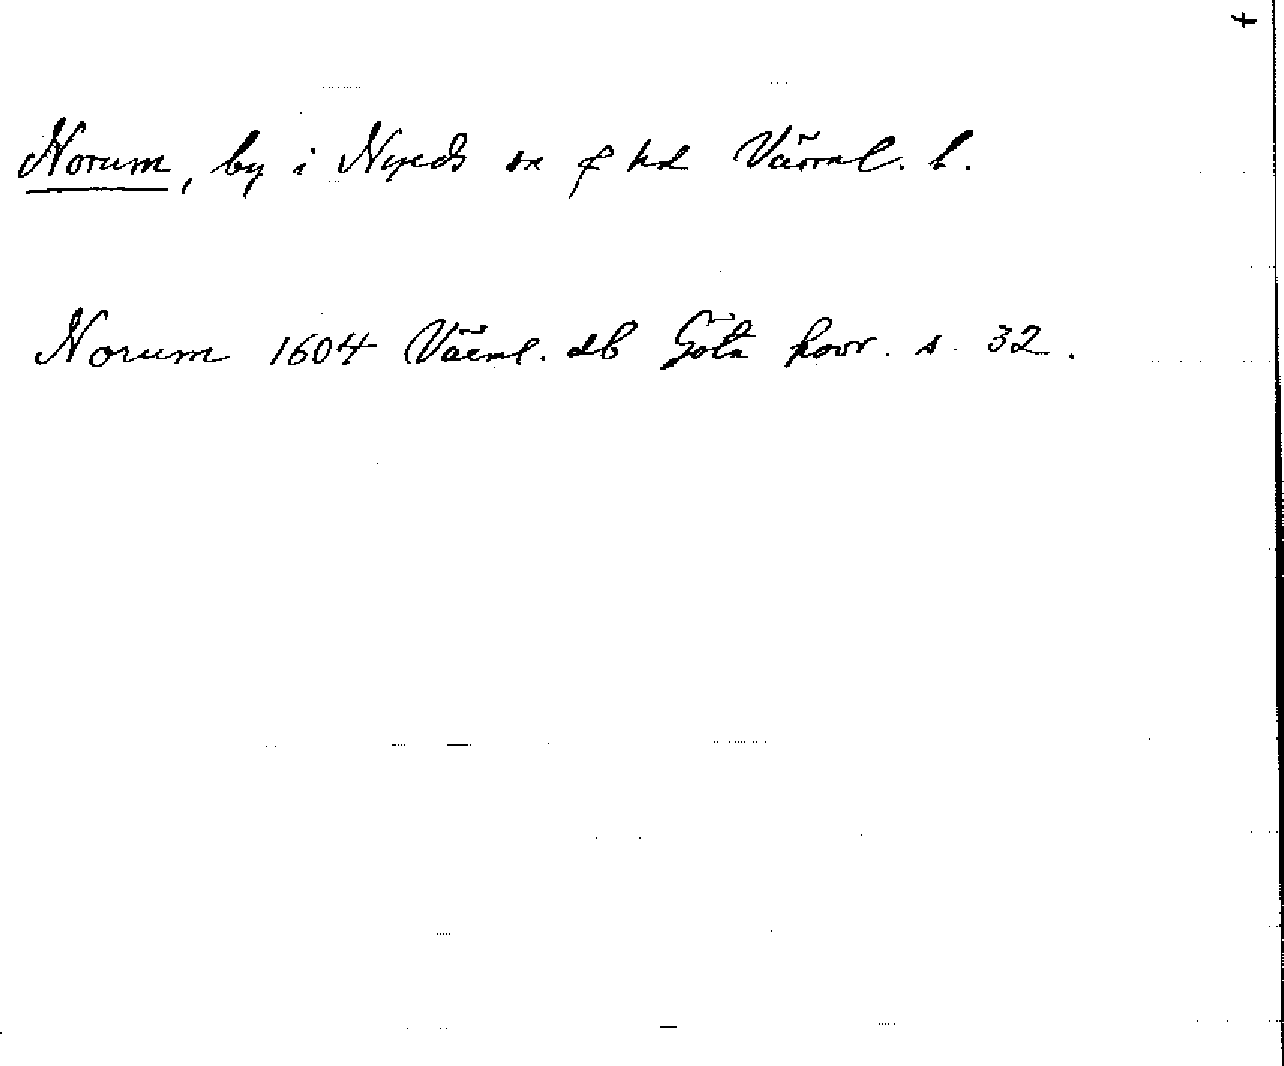 Norum, by i Nyeds sn f hd Värml. l.
Norum 1604 Värml. db Göta hovr. s. 32.